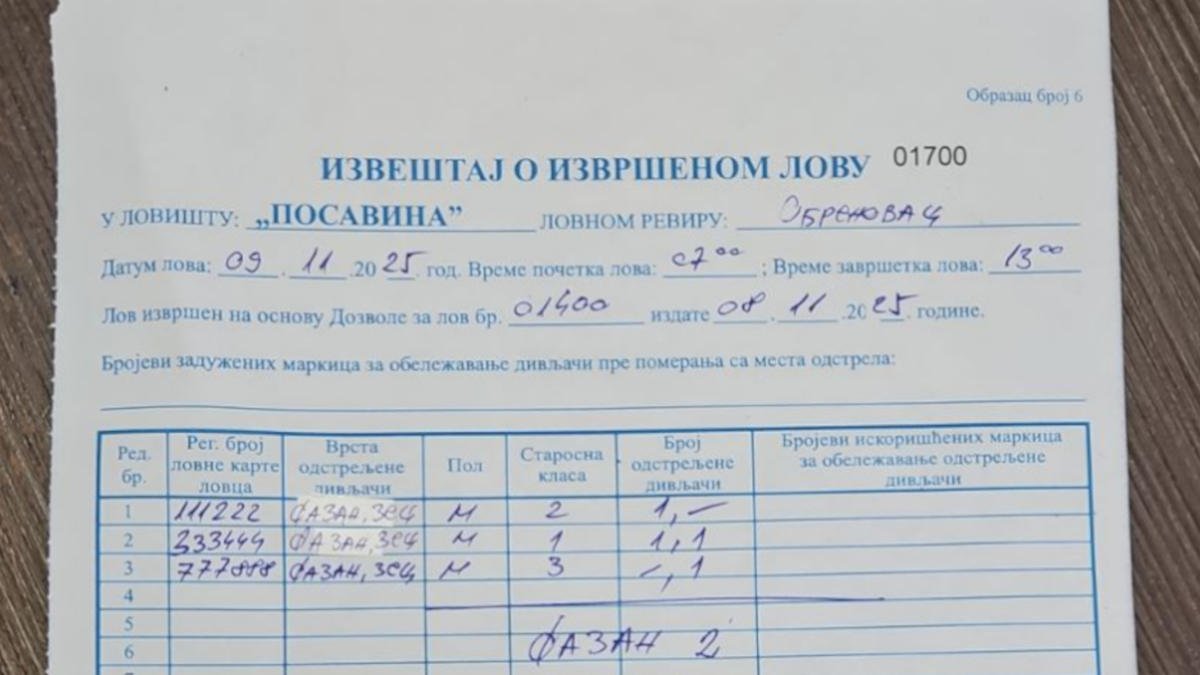 Образац број 6
ИЗВЕШТАЈ О ИЗВРШЕНОМ ЛОВУ 01700
У ЛОВИШТУ: „ПОСАВИНА” ЛОВНОМ РЕВИРУ: ОБРЕНОВАЦ
Датум лова: 09 . 11 .2025. год. Време почетка лова: 07⁰⁰ ; Време завршетка лова: 13⁰⁰
Лов извршен на основу Дозволе за лов бр. 01400 издате 08 . 11 .2025. године.
Бројеви задужених маркица за обележавање дивљачи пре померања са места одстрела:
Ред. бр. Рег. број ловне карте ловца Врста одстрељене дивљачи Пол Старосна класа Број одстрељене дивљачи Бројеви искоришћених маркица за обележавање одстрељене дивљачи
1 111222 ФАЗАН, ЗЕЦ М 2 1, –
2 333444 ФАЗАН, ЗЕЦ М 1 1, 1
3 777888 ФАЗАН, ЗЕЦ М 3 –, 1
4
5
6 ФАЗАН 2